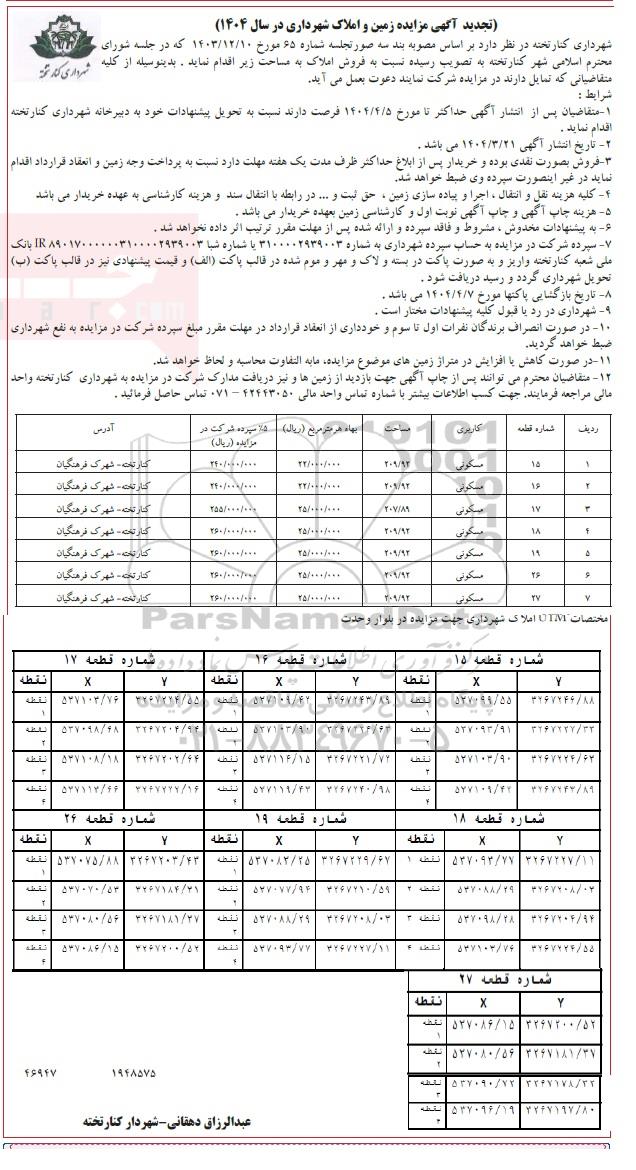 (تجدید آگهی مزایده زمین و املاک شهرداری در سال ۱۴۰۴)
شهرداری کنارتخته
شهرداری کنارتخته در نظر دارد بر اساس مصوبه بند سه صورتجلسه شماره ۶۵ مورخ ۱۴۰۳/۱۲/۱۰ که در جلسه شورای
محترم اسلامی شهر کنارتخته به تصویب رسیده نسبت به فروش املاک به مساحت زیر اقدام نماید . بدینوسیله از کلیه
متقاضیانی که تمایل دارند در مزایده شرکت نمایند دعوت بعمل می آید.
شرایط :
۱-متقاضیان پس از انتشار آگهی حداکثر تا مورخ ۱۴۰۴/۴/۵ فرصت دارند نسبت به تحویل پیشنهادات خود به دبیرخانه شهرداری کنارتخته
اقدام نماید .
۲- تاریخ انتشار آگهی ۱۴۰۴/۳/۲۱ می باشد .
۳-فروش بصورت نقدی بوده و خریدار پس از ابلاغ حداکثر ظرف مدت یک هفته مهلت دارد نسبت به پرداخت وجه زمین و انعقاد قرارداد اقدام
نماید در غیر اینصورت سپرده وی ضبط خواهد شد.
۴- کلیه هزینه نقل و انتقال ، اجرا و پیاده سازی زمین ، حق ثبت و ... در رابطه با انتقال سند و هزینه کارشناسی به عهده خریدار می باشد
۵- هزینه چاپ آگهی و چاپ آگهی نوبت اول و کارشناسی زمین بعهده خریدار می باشد .
۶- به پیشنهادات مخدوش ، مشروط و فاقد سپرده و ارائه شده پس از مهلت مقرر ترتیب اثر داده نخواهد شد .
۷- سپرده شرکت در مزایده به حساب سپرده شهرداری به شماره ۳۱۰۰۰۰۲۹۳۹۰۰۳ یا شماره شبا IR ۸۹۰۱۷۰۰۰۰۰۰۳۱۰۰۰۰۲۹۳۹۰۰۳ بانک
ملی شعبه کنارتخته واریز و به صورت پاکت در بسته و لاک و مهر و موم شده در قالب پاکت (الف) و قیمت پیشنهادی نیز در قالب پاکت (ب)
تحویل شهرداری گردد و رسید دریافت شود .
۸- تاریخ بازگشایی پاکتها مورخ ۱۴۰۴/۴/۷ می باشد .
۹- شهرداری در رد یا قبول کلیه پیشنهادات مختار است .
۱۰- در صورت انصراف برندگان نفرات اول تا سوم و خودداری از انعقاد قرارداد در مهلت مقرر مبلغ سپرده شرکت در مزایده به نفع شهرداری
ضبط خواهد گردید.
۱۱-در صورت کاهش یا افزایش در متراژ زمین های موضوع مزایده، مابه التفاوت محاسبه و لحاظ خواهد شد.
۱۲- متقاضیان محترم می توانند پس از چاپ آگهی جهت بازدید از زمین ها و نیز دریافت مدارک شرکت در مزایده به شهرداری کنارتخته واحد
مالی مراجعه فرمایند. جهت کسب اطلاعات بیشتر با شماره تماس واحد مالی ۴۲۴۴۳۰۵۰ – ۰۷۱ تماس حاصل فرمائید .
ردیف شماره قطعه کاربری مساحت بهاء هرمترمربع (ریال) ۵٪ سپرده شرکت در مزایده (ریال) آدرس
۱ ۱۵ مسکونی ۲۰۹/۹۲ ۲۲/۰۰۰/۰۰۰ ۲۴۰/۰۰۰/۰۰۰ کنارتخته- شهرک فرهنگیان
۲ ۱۶ مسکونی ۲۰۹/۹۲ ۲۲/۰۰۰/۰۰۰ ۲۴۰/۰۰۰/۰۰۰ کنارتخته- شهرک فرهنگیان
۳ ۱۷ مسکونی ۲۰۷/۸۹ ۲۵/۰۰۰/۰۰۰ ۲۵۵/۰۰۰/۰۰۰ کنارتخته- شهرک فرهنگیان
۴ ۱۸ مسکونی ۲۰۹/۹۲ ۲۵/۰۰۰/۰۰۰ ۲۶۰/۰۰۰/۰۰۰ کنارتخته- شهرک فرهنگیان
۵ ۱۹ مسکونی ۲۰۹/۹۲ ۲۵/۰۰۰/۰۰۰ ۲۶۰/۰۰۰/۰۰۰ کنارتخته- شهرک فرهنگیان
۶ ۲۶ مسکونی ۲۰۹/۹۲ ۲۵/۰۰۰/۰۰۰ ۲۶۰/۰۰۰/۰۰۰ کنارتخته- شهرک فرهنگیان
۷ ۲۷ مسکونی ۲۰۹/۹۲ ۲۵/۰۰۰/۰۰۰ ۲۶۰/۰۰۰/۰۰۰ کنارتخته- شهرک فرهنگیان
ParsNamadData
مختصات UTM املاک شهرداری جهت مزایده در بلوار وحدت
۰۲۱-۸۸۳۴۹۶۷۰-۵
شماره قطعه ۱۵ شماره قطعه ۱۶ شماره قطعه ۱۷
Y X نقطه Y X نقطه Y X نقطه
۳۲۶۷۲۴۶/۸۸ ۵۳۷۰۹۹/۵۵ نقطه ۱ ۳۲۶۷۲۴۳/۸۹ ۵۳۷۱۰۹/۴۲ نقطه ۱ ۳۲۶۷۲۲۴/۵۵ ۵۳۷۱۰۳/۷۶ نقطه ۱
۳۲۶۷۲۲۷/۳۲ ۵۳۷۰۹۳/۹۱ نقطه ۲ ۳۲۶۷۲۲۴/۶۳ ۵۳۷۱۰۳/۹۰ نقطه ۲ ۳۲۶۷۲۰۴/۹۴ ۵۳۷۰۹۸/۶۸ نقطه ۲
۳۲۶۷۲۲۴/۶۳ ۵۳۷۱۰۳/۹۰ نقطه ۳ ۳۲۶۷۲۲۱/۷۲ ۵۳۷۱۱۶/۱۵ نقطه ۳ ۳۲۶۷۲۰۲/۶۴ ۵۳۷۱۰۸/۱۸ نقطه ۳
۳۲۶۷۲۴۳/۸۹ ۵۳۷۱۰۹/۴۲ نقطه ۴ ۳۲۶۷۲۴۰/۹۸ ۵۳۷۱۱۹/۴۳ نقطه ۴ ۳۲۶۷۲۲۲/۱۶ ۵۳۷۱۱۳/۶۶ نقطه ۴
شماره قطعه ۱۸ شماره قطعه ۱۹ شماره قطعه ۲۶
Y X نقطه Y X نقطه Y X نقطه
۳۲۶۷۲۲۷/۱۱ ۵۳۷۰۹۳/۷۷ نقطه ۱ ۳۲۶۷۲۲۹/۶۷ ۵۳۷۰۸۳/۲۵ نقطه ۱ ۳۲۶۷۲۰۳/۴۳ ۵۳۷۰۷۵/۸۸ نقطه ۱
۳۲۶۷۲۰۸/۰۳ ۵۳۷۰۸۸/۲۹ نقطه ۲ ۳۲۶۷۲۱۰/۵۹ ۵۳۷۰۷۷/۹۴ نقطه ۲ ۳۲۶۷۱۸۴/۳۱ ۵۳۷۰۷۰/۵۳ نقطه ۲
۳۲۶۷۲۰۴/۹۴ ۵۳۷۰۹۸/۲۸ نقطه ۳ ۳۲۶۷۲۰۸/۰۳ ۵۳۷۰۸۸/۲۹ نقطه ۳ ۳۲۶۷۱۸۱/۳۷ ۵۳۷۰۸۰/۵۶ نقطه ۳
۳۲۶۷۲۲۴/۵۵ ۵۳۷۱۰۳/۷۶ نقطه ۴ ۳۲۶۷۲۲۷/۱۱ ۵۳۷۰۹۳/۷۷ نقطه ۴ ۳۲۶۷۲۰۰/۵۲ ۵۳۷۰۸۶/۱۵ نقطه ۴
شماره قطعه ۲۷
Y X نقطه
۳۲۶۷۲۰۰/۵۲ ۵۳۷۰۸۶/۱۵ نقطه ۱
۳۲۶۷۱۸۱/۳۷ ۵۳۷۰۸۰/۵۶ نقطه ۲
۳۲۶۷۱۷۸/۳۲ ۵۳۷۰۹۰/۷۲ نقطه ۳
۳۲۶۷۱۹۷/۸۰ ۵۳۷۰۹۶/۱۹ نقطه ۴
۱۹۴۸۵۷۵ ۴۶۹۴۷
عبدالرزاق دهقانی-شهردار کنارتخته